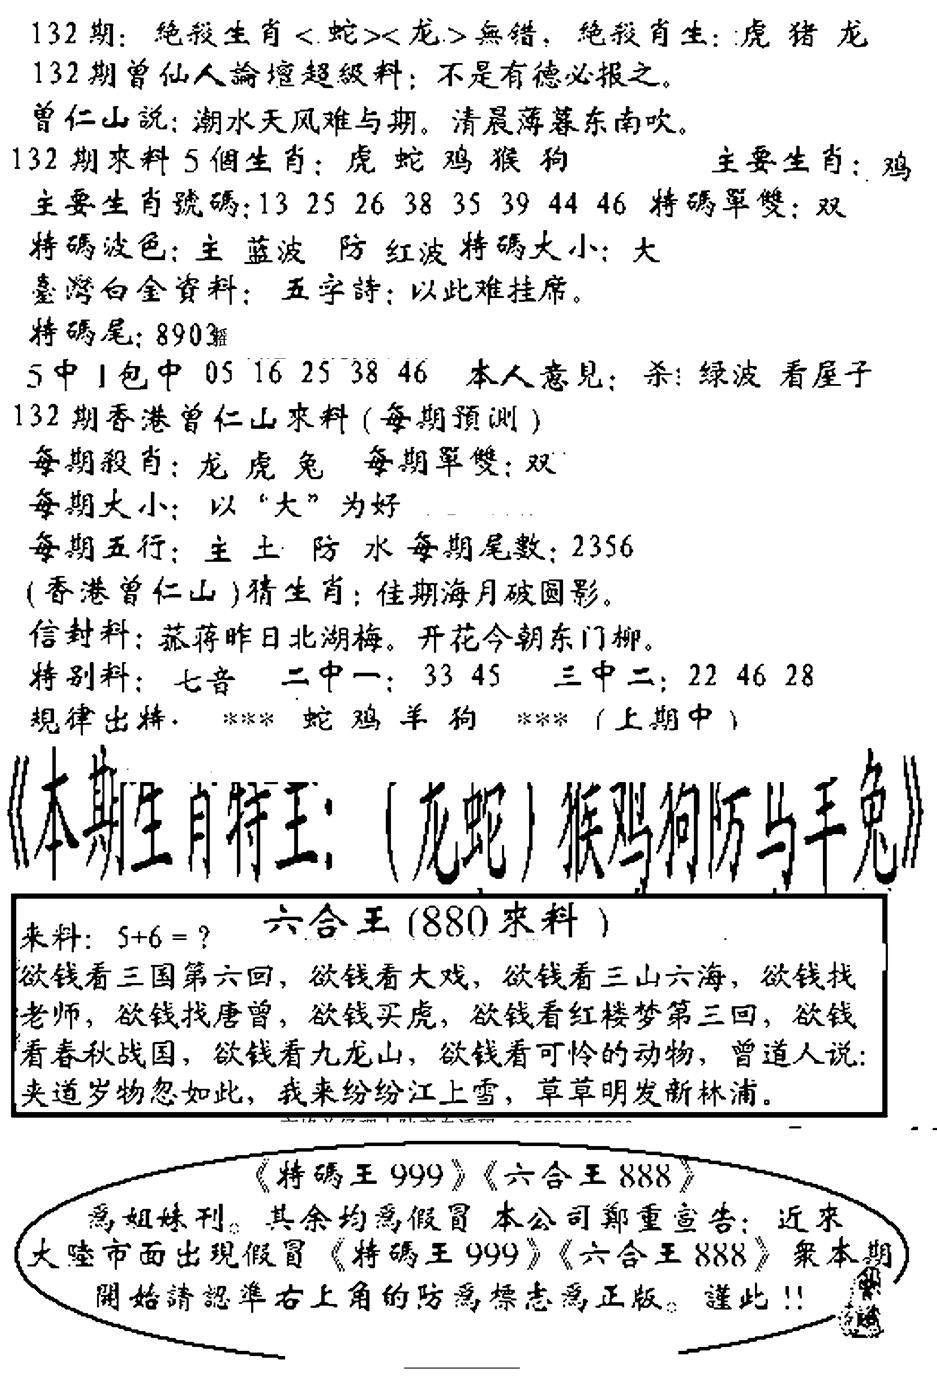 132期: 絶殺生肖<蛇><龙>無错, 絶殺肖生: 虎 猪 龙
132期曾仙人論壇超級料: 不是有德必报之。
曾仁山説: 潮水天风难与期。清晨薄暮东南吹。
132期來料5個生肖: 虎 蛇 鸡 猴 狗 主要生肖: 鸡
主要生肖號碼:13 25 26 38 35 39 44 46 特碼單雙: 双
特碼波色: 主 蓝波 防 红波 特碼大小: 大
臺灣白金資料: 五字詩: 以此难挂席。
特碼尾: 8903
5中1包中 05 16 25 38 46 本人意見: 杀: 绿波 看屋子
132期香港曾仁山來料(每期預測)
每期殺肖: 龙 虎 兔 每期單雙: 双
每期大小: 以“大”为好
每期五行: 主 土 防 水 每期尾數: 2356
(香港曾仁山)猜生肖: 佳期海月破圆影。
信封料: 菰蒋昨日北湖梅。开花今朝东门柳。
特别料: 七音 二中一: 33 45 三中二: 22 46 28
規律出特. *** 蛇 鸡 羊 狗 *** (上期中)
《本期生肖特王:(龙蛇)猴鸡狗防马羊兔》
六合王(880來料)
来料: 5+6=?
欲钱看三国第六回, 欲钱看大戏, 欲钱看三山六海, 欲钱找
老师, 欲钱找唐曾, 欲钱买虎, 欲钱看红楼梦第三回, 欲钱
看春秋战国, 欲钱看九龙山, 欲钱看可怜的动物, 曾道人说:
夹道岁物忽如此, 我来纷纷江上雪, 草草明发新林浦。
《特碼王999》《六合王888》
爲姐妹刊。其余均爲假冒 本公司鄭重宣告: 近來
大陸市面出現假冒《特碼王999》《六合王888》衆本期
開始請認準右上角的防爲標志爲正版。謹此!!